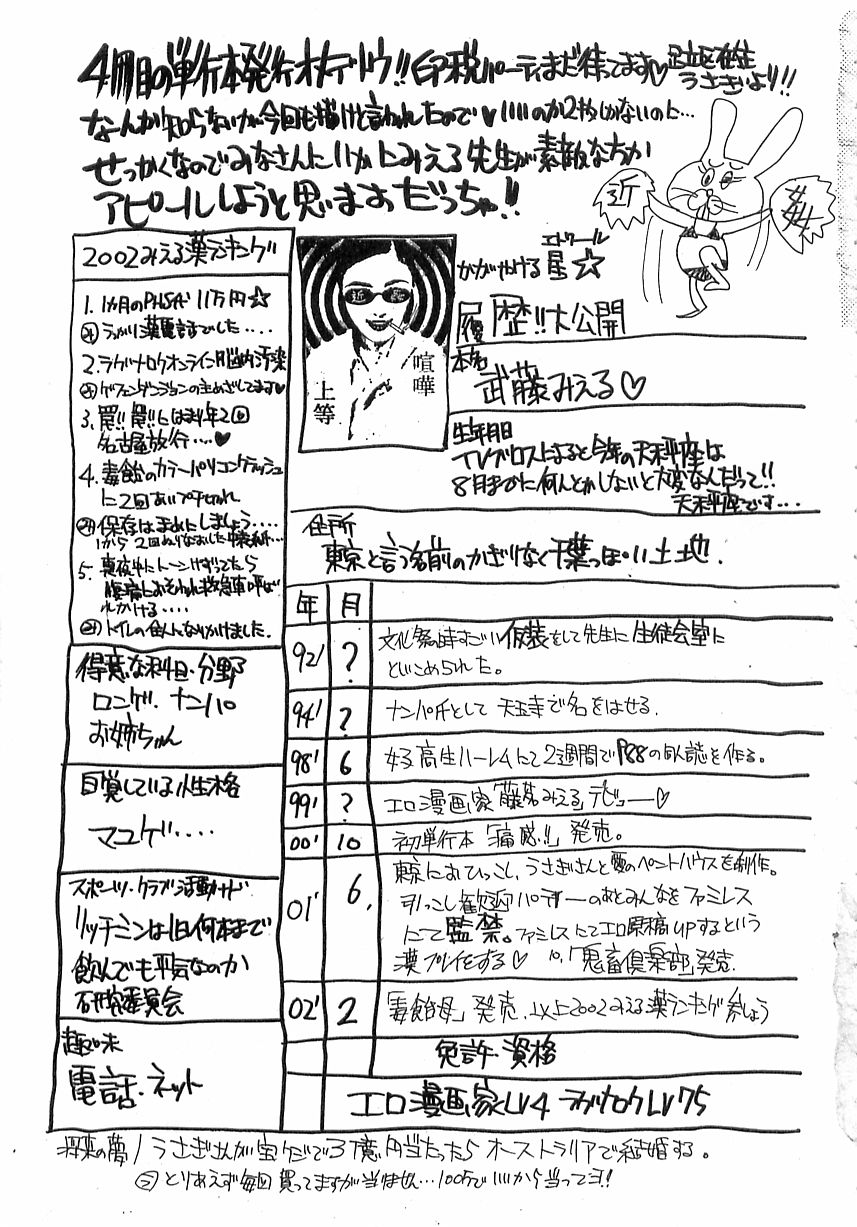 4冊目の単行本発行オメデトウ!! 印税パーティまだ待ってます♡ 足立区在住うさぎより!!
なーんか知らないけど今回も描けと言われたので♥いいのか2枚しかないのに…
せっかくなのでみなさんにいかにみえる先生が素敵な方か
アピールしようと思いますだっちゃ!!
近
2002みえる薬ランキング
1. 1カ月のPHS代 11万円☆
2. ラグナロクオンライン脳内汚染
3. 罠!! 罠!! 年2回
名古屋旅行…♥
4. 毒飴のカラーパソコンクラッシュ
に2回
保存はまめにしましょう…
5. 真夜中にトーンけずってたら
腹痛におそわれ救急車呼ば
れかける…
トイレの住人になりかけました.
喧嘩
上等
エトワール
かがやける星☆
履歴!!大公開
本名
武藤みえる♡
生年月日
TVブロスによると今年の天秤座は
8月までに何んとかしないと大変なんだって!!
天秤座です…
住所
東京と言う名前のかぎりなく千葉っぽい土地.
年 月
92' ? 文化祭の時すごい仮装をして先生に生徒会室に
とじこめられた。
94' ? ナンパ師として天王寺で名をはせる.
98' 6 女子高生ハーレムにて2週間でP88の同人誌を作る。
99' ? エロ漫画家「藤みえる」デビュー♡
00' 10 初単行本「痛感!!」発売。
01' 6. 東京におひっこし、うさぎさんと愛のペントハウスを制作。
引っこし歓迎パーティーのあとみんなをファミレス
にて監禁。ファミレスにてエロ原稿UPするという
漢プレイをする♡ 10.「鬼畜倶楽部」発売.
02' 2 「毒飴母」発売. 以上2002みえる薬ランキング参しょう
免許・資格
エロ漫画家LV4 ラグナロクLV75
得意な科目・分野
ロンゲ. ナンパ
お姉ちゃん
自覚している性格
マユゲ….
スポーツ・クラブ活動など
リッチミンは1日何本まで
飲んでも平気なのか
研究委員会
趣味
電話・ネット
将来の夢/うさぎさんが宝クジで3億円当たったらオーストラリアで結婚する。
とりあえず毎回買ってますが当りません…100万でいいから当ってヨ!!